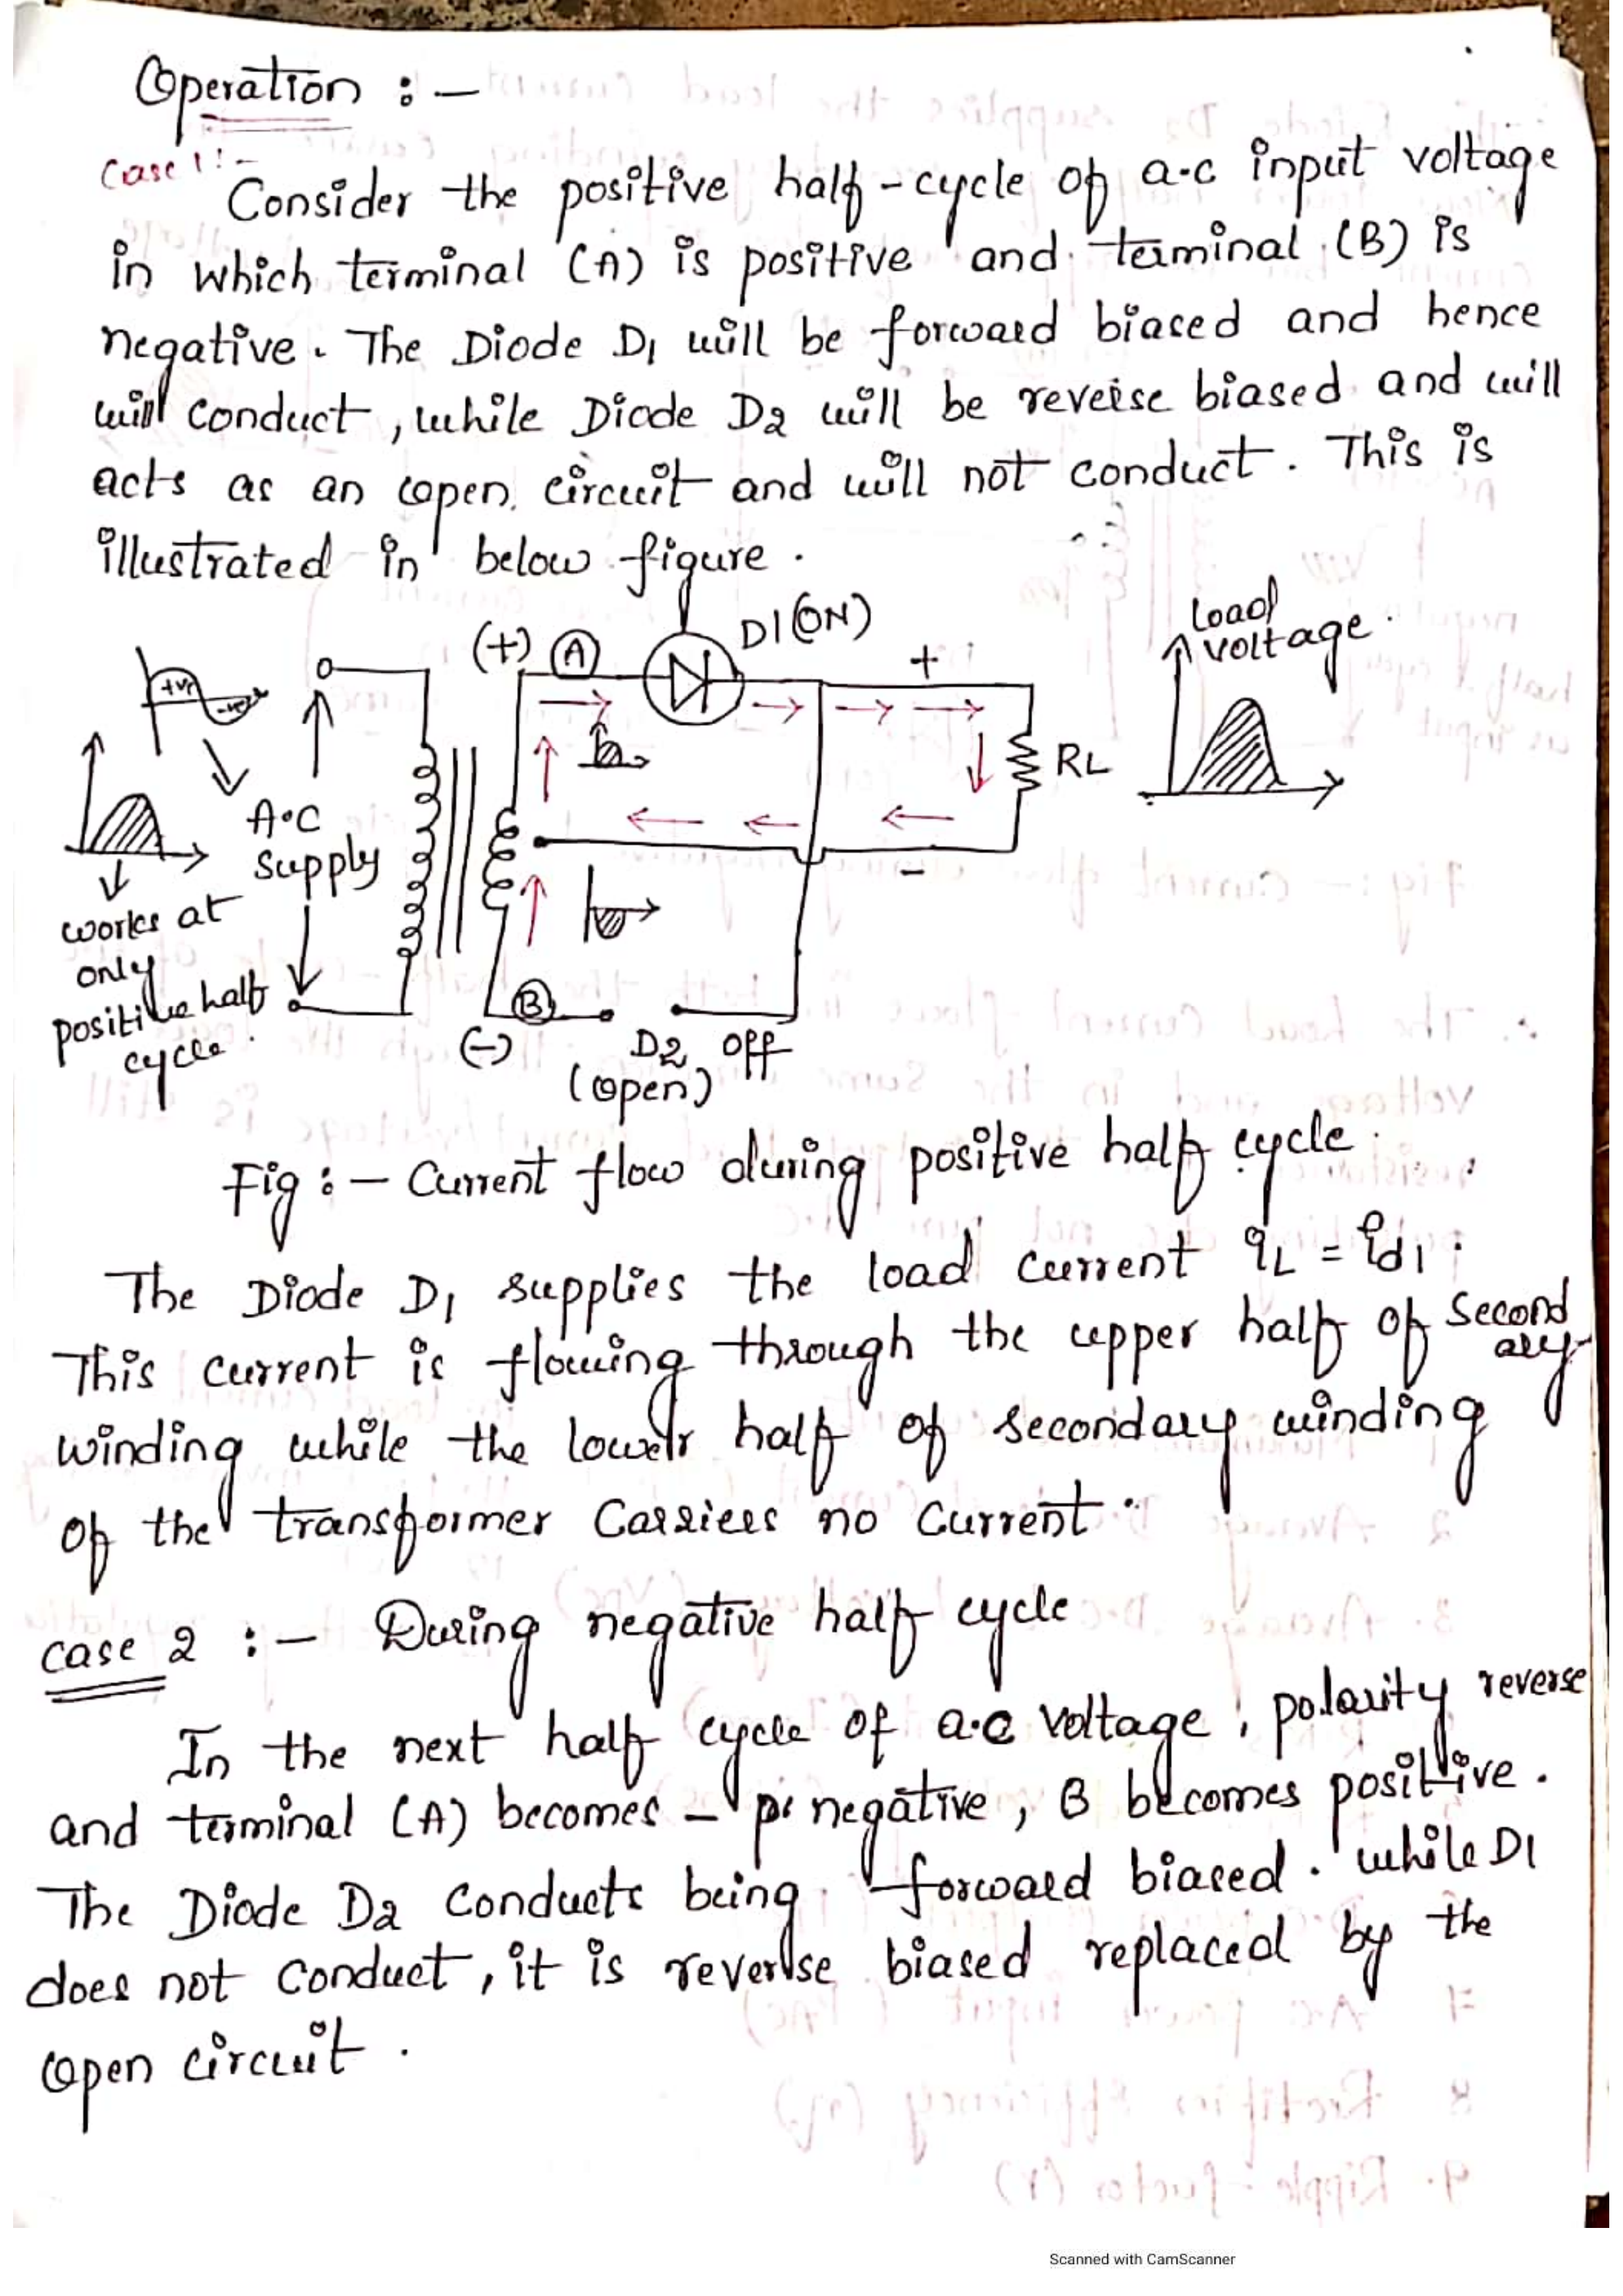 Operation :-
Case 1:-
Consider the positive half-cycle of a.c input voltage
in which terminal (A) is positive and terminal (B) is
negative. The Diode D1 will be forward biased and hence
will conduct, while Diode D2 will be reverse biased and will
acts as an open circuit and will not conduct. This is
illustrated in below figure.
+ve
-ve
A.C
Supply
works at
only
positive half
cycle.
(+) A
D1 (ON)
+
RL
-
Load
voltage.
B
(-)
D2 OFF
(open)
Fig :- Current flow during positive half cycle.
The Diode D1 supplies the load current iL = id1.
This current is flowing through the upper half of second
ary
winding while the lower half of secondary winding
of the transformer Carries no Current.
case 2 :- During negative half cycle
In the next half cycle of a.c voltage, polarity reverse
and terminal (A) becomes - negative, B becomes positive.
The Diode D2 Conducts being forward biased. while D1
does not conduct, it is reverse biased replaced by the
open circuit.
Scanned with CamScanner